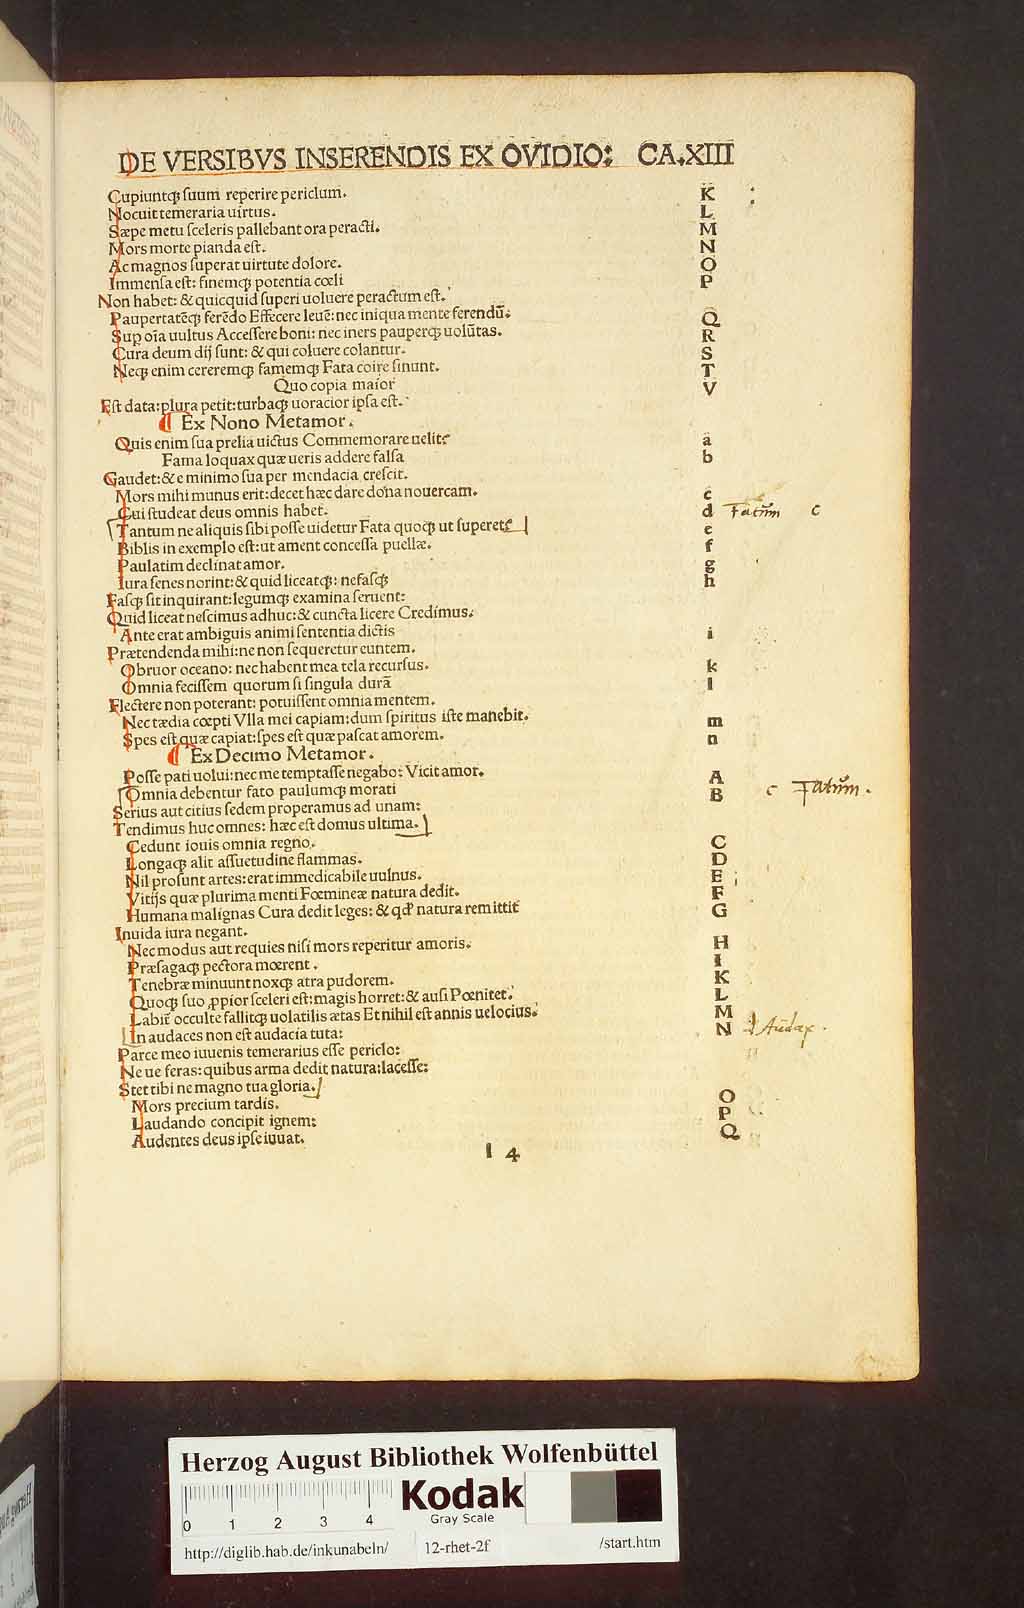 DE VERSIBVS INSERENDIS EX OVIDIO: CA.XIII
Cupiuntqꝫ ſuum reperire periclum. K :
Nocuit temeraria uirtus. L
Sæpe metu ſceleris pallebant ora peracti. M
Mors morte pianda eſt. N
Ac magnos ſuperat uirtute dolore. O
Immenſa eſt: finemqꝫ potentia cœli P
Non habet: & quicquid ſuperi uoluere peractum eſt.
Paupertatēqꝫ ferēdo Effecere leuē: nec iniqua mente ferendū: Q
Sup oīa uultus Acceſſere boni: nec iners pauperqꝫ uolūtas. R
Cura deum dij ſunt: & qui coluere colantur. S
Neqꝫ enim cereremqꝫ famemqꝫ Fata coire ſinunt. T
Quo copia maior V
Eſt data: plura petit: turbaqꝫ uoracior ipſa eſt.
Ex Nono Metamor.
Quis enim ſua prelia uictus Commemorare uelit: a
Fama loquax quæ ueris addere falſa b
Gaudet: & e minimo ſua per mendacia creſcit.
Mors mihi munus erit: decet hæc dare dona nouercam. c
Cui ſtudeat deus omnis habet. d Fatūm c
Tantum ne aliquis ſibi poſſe uidetur Fata quoqꝫ ut ſuperet: e
Biblis in exemplo eſt: ut ament conceſſa puellæ. f
Paulatim declinat amor. g
Iura ſenes norint: & quid liceatqꝫ: nefaſqꝫ h
Faſqꝫ ſit inquirant: legumqꝫ examina ſeruent:
Quid liceat neſcimus adhuc: & cuncta licere Credimus.
Ante erat ambiguis animi ſententia dictis i
Prætendenda mihi: ne non ſequeretur euntem.
Obruor oceano: nec habent mea tela recurſus. k
Omnia feciſſem quorum ſi ſingula durā l
Flectere non poterant: potuiſſent omnia mentem.
Nec tædia cœpti Vlla mei capiam: dum ſpiritus iſte manebit. m
Spes eſt quæ capiat: ſpes eſt quæ paſcat amorem. n
Ex Decimo Metamor.
Poſſe pati uolui: nec me temptaſſe negabo: Vicit amor. A
Omnia debentur fato paulumqꝫ morati B c Fatūm.
Serius aut citius ſedem properamus ad unam:
Tendimus huc omnes: hæc eſt domus ultima.
Cedunt iouis omnia regno. C
Longaqꝫ alit aſſuetudine flammas. D
Nil proſunt artes: erat immedicabile uulnus. E
Vitijs quæ plurima menti Fœmineæ natura dedit. F
Humana malignas Cura dedit leges: & qd natura remittit G
Inuida iura negant.
Nec modus aut requies niſi mors reperitur amoris. H
Præſagaqꝫ pectora mœrent. I
Tenebræ minuunt noxqꝫ atra pudorem. K
Quoqꝫ ſuo ꝓpior ſceleri eſt: magis horret: & auſi Pœnitet. L
Labit̄ occulte fallitqꝫ uolatilis ætas Et nihil eſt annis uelocius. M
In audaces non eſt audacia tuta: N Audax.
Parce meo iuuenis temerarius eſſe periclo:
Ne ue feras: quibus arma dedit natura: laceſſe:
Stet tibi ne magno tua gloria.
Mors precium tardis. O
Laudando concipit ignem: P
Audentes deus ipſe iuuat. Q
I 4
Herzog August Bibliothek Wolfenbüttel
0 1 2 3 4
Kodak
Gray Scale
http://diglib.hab.de/inkunabeln/ 12-rhet-2f /start.htm